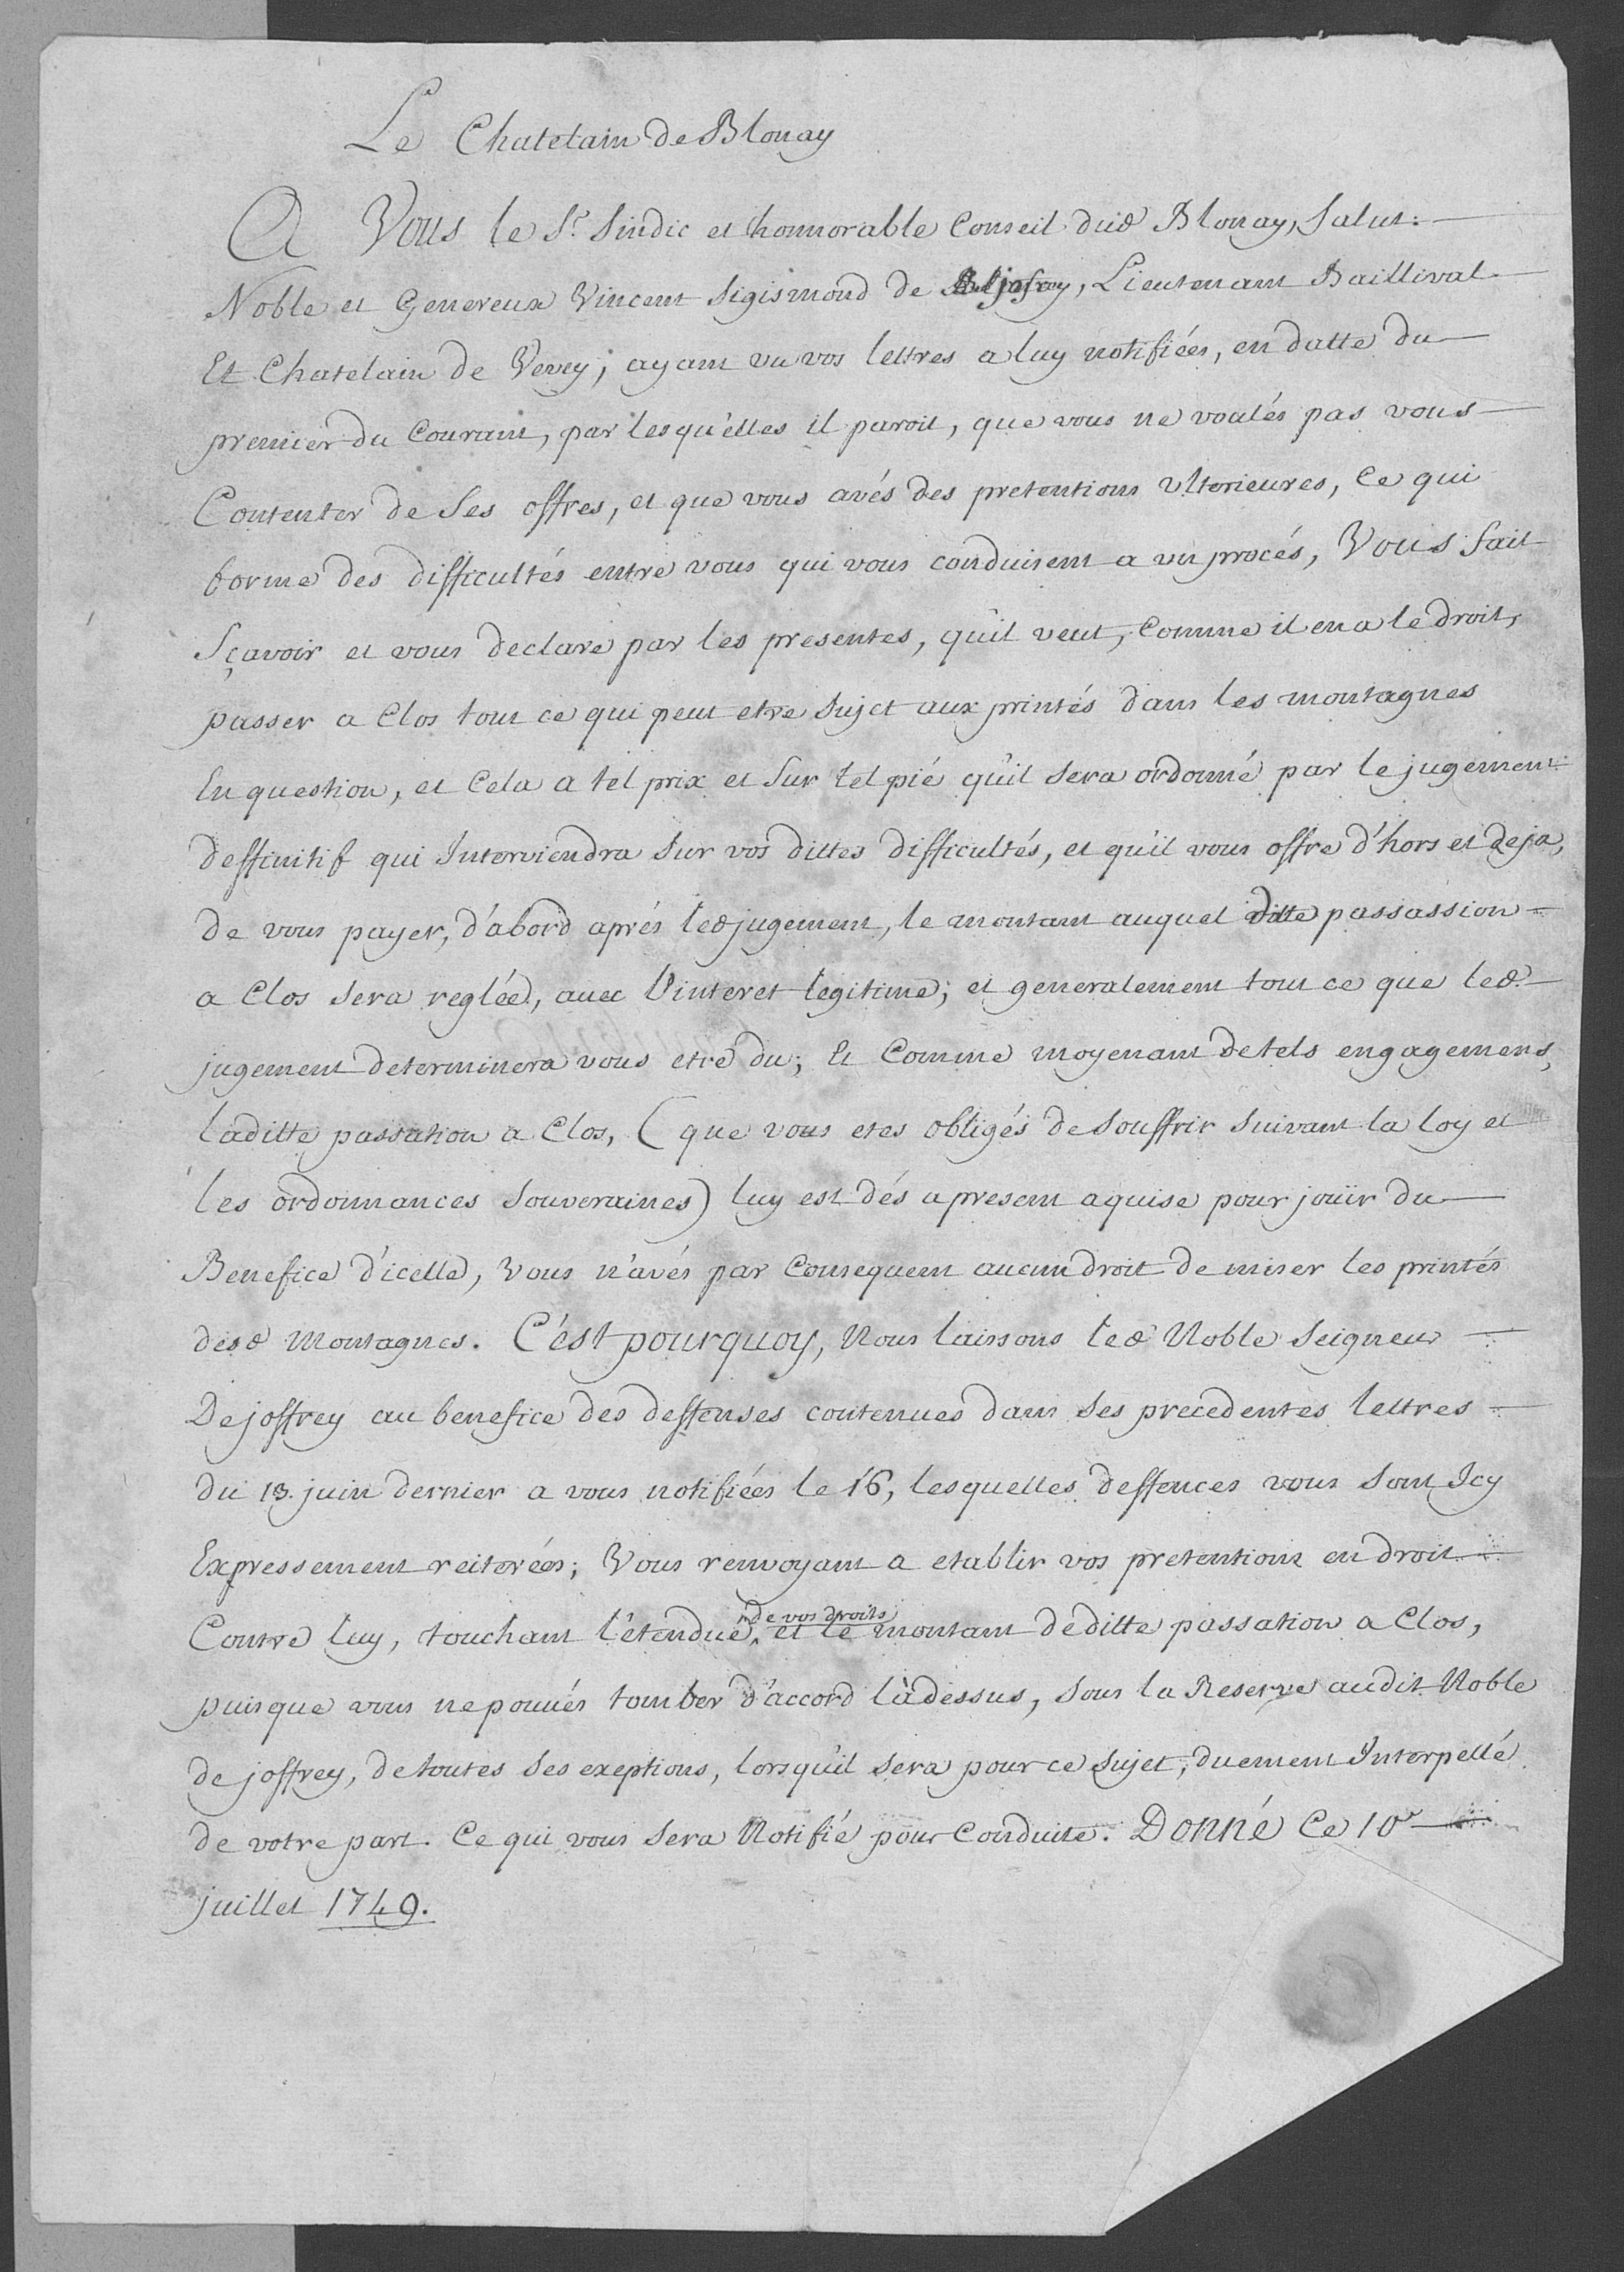 Le Chatelain de Blonay
A Vous le Sr. Sindic et honnorable Conseil dud Blonay, Salut.
Noble et Genereux Vincent Sigismond de joffrey, Lieutenant Baillival
Et Chatelain de Vevey; ayant vu vos lettres a luy notifiées, en datte du
premier du Courant, par lesqu'elles il paroit, que vous ne voulés pas vous
Contenter de Ses offres, et que vous avés des pretentions ulterieures, Ce qui
forme des difficultés entre vous qui vous conduisent a un procés, Vous fait
Sçavoir et vous declare par les presentes, qu'il veut, Comme il en a le droit,
passer a Clos tout ce qui peut etre Sujet aux printés dans les montagnes
En question, et Cela a tel prix et Sur tel pié qu'il Sera ordonné par le jugement
deffinitif qui Interviendra Sur vos dittes difficultés, et qu'il vous offre d'hors et deja,
de vous payer, d'abord aprés led jugement, le montant auquel ditte passassion
a Clos Sera reglée, avec l'interet legitime; et generalement tout ce que led.
jugement determinera vous etre du; Et Comme moyenant de tels engagemens,
laditte passation a Clos, (que vous etes obligés de Souffrir Suivant la loy et
les ordonnances Souveraines) luy est dés a present aquise pour joüir du
Benefice d'icelle, Vous n'avés par Consequent aucun droit de miser les printés
desd Montagnes. C'est pourquoy, Nous laissons led Noble Seigneur
De joffrey au benefice des deffenses contenues dans Ses precedentes lettres
du 13. juin dernier a vous notifiées le 16, lesquelles deffences vous Sont Icy
Expressement reiterées; Vous renvoyant a etablir vos pretentions en droit
Contre luy, touchant l'étendue, de vos droits et le montant de ditte passation a Clos,
puisque vous ne pouvés tomber d'accord làdessus, Sous la Reserve audit Noble
de joffrey, de toutes Ses exeptions, lorsqu'il Sera pour ce Sujet, duement Interpellé
de votre part. Ce qui vous Sera Notifié pour Conduite. Donné Ce 10e
juillet 1749.